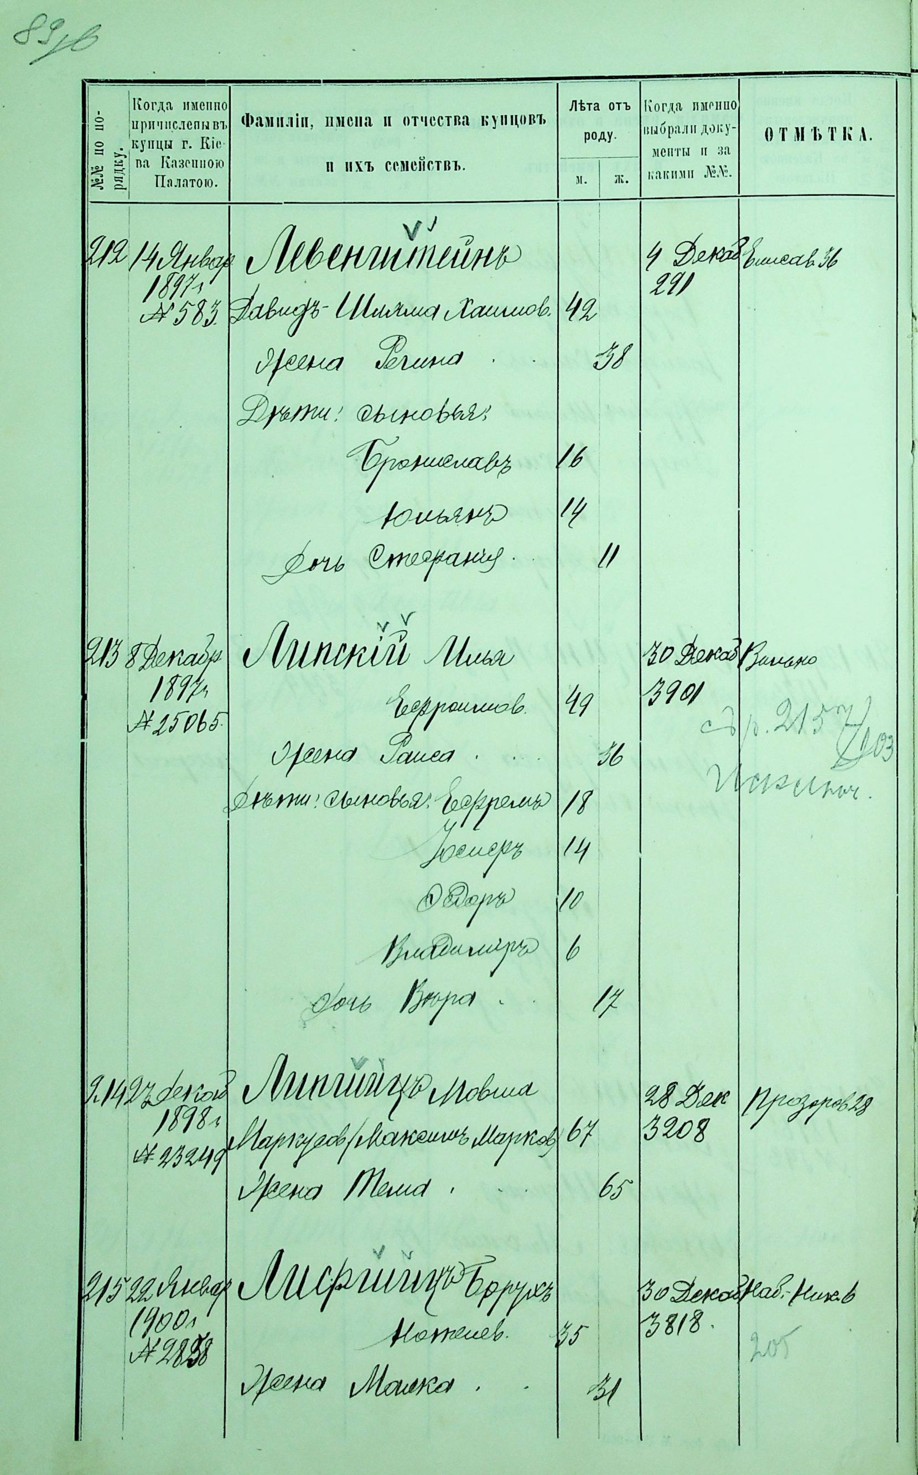 89 об
№№ по по-
рядку.
Когда именно
причислены въ
купцы г. Кіе-
ва Казенною
Палатою.
Фамиліи, имена и отчества купцовъ
и ихъ семействъ.
Лѣта отъ
роду.
м. ж.
Когда именно
выбрали доку-
менты и за
какими №№.
ОТМѢТКА.
212 14 Январ Левенштейнъ 4 Декаб Елисав 36
1897 г 291
№ 583. Давидъ-Шлма Хаимов. 42
Жена Регина . . 38
Дѣти: сыновья:
Брониславъ 16
Юльянъ 14
Дочь Стефанія . 11
213 8 Декабр Липскій Илья 30 Декаб
1897 г 3901
№ 25065. Ефраимов. 49
Жена Раиса . . . 36
Дѣти: сыновья: Ефремъ 18
Іосифъ 14
Ѳедоръ 10
Владиміръ 6
Дочь Вѣра . . 17
214 27 Декаб Липшицъ Мовша 28 Дек Прозоров 28
1898 г 3208
№ 23249 Маркусов (Максимъ Марков) 67
Жена Тема . . 65
215 22 Январ Лифшицъ Борухъ 30 Декаб Наб.-Ник. 6
1900 г 3818.
№ 2858 35 205
Жена Малка . . 31